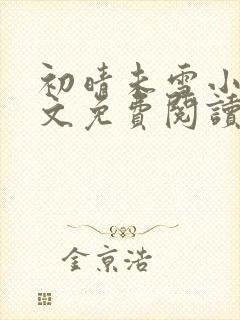 初晴未雪小
文免費閱讀
金京浩